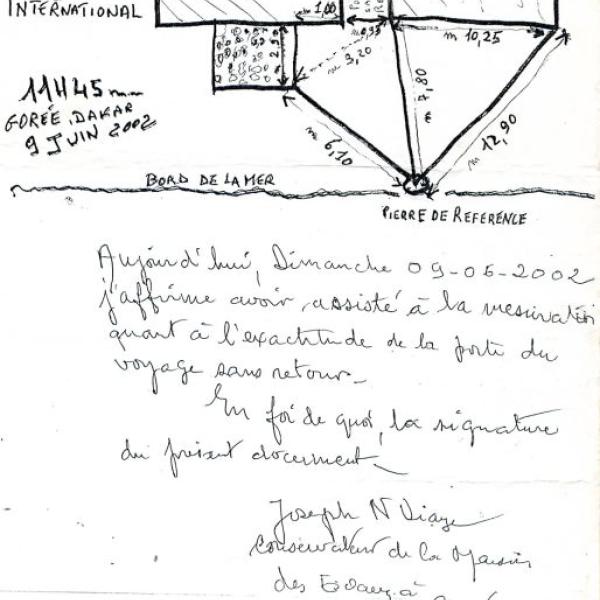 INTERNATIONAL
1,00
0,95
m 10,25
2,5
m 3,20
11H45
GORÉE, DAKAR
9 JUIN 2002
m 7,80
m 6,10
m 12,90
BORD DE LA MER
PIERRE DE REFERENCE
Aujourd'hui, Dimanche 09-06-2002
j'affirme avoir assisté à la
quant à l'exactitude de la porte du
voyage sans retour_
En foi de quoi, la signature
du présent document_
Joseph N'Diaye
conservateur de la Maison
des Esclaves à